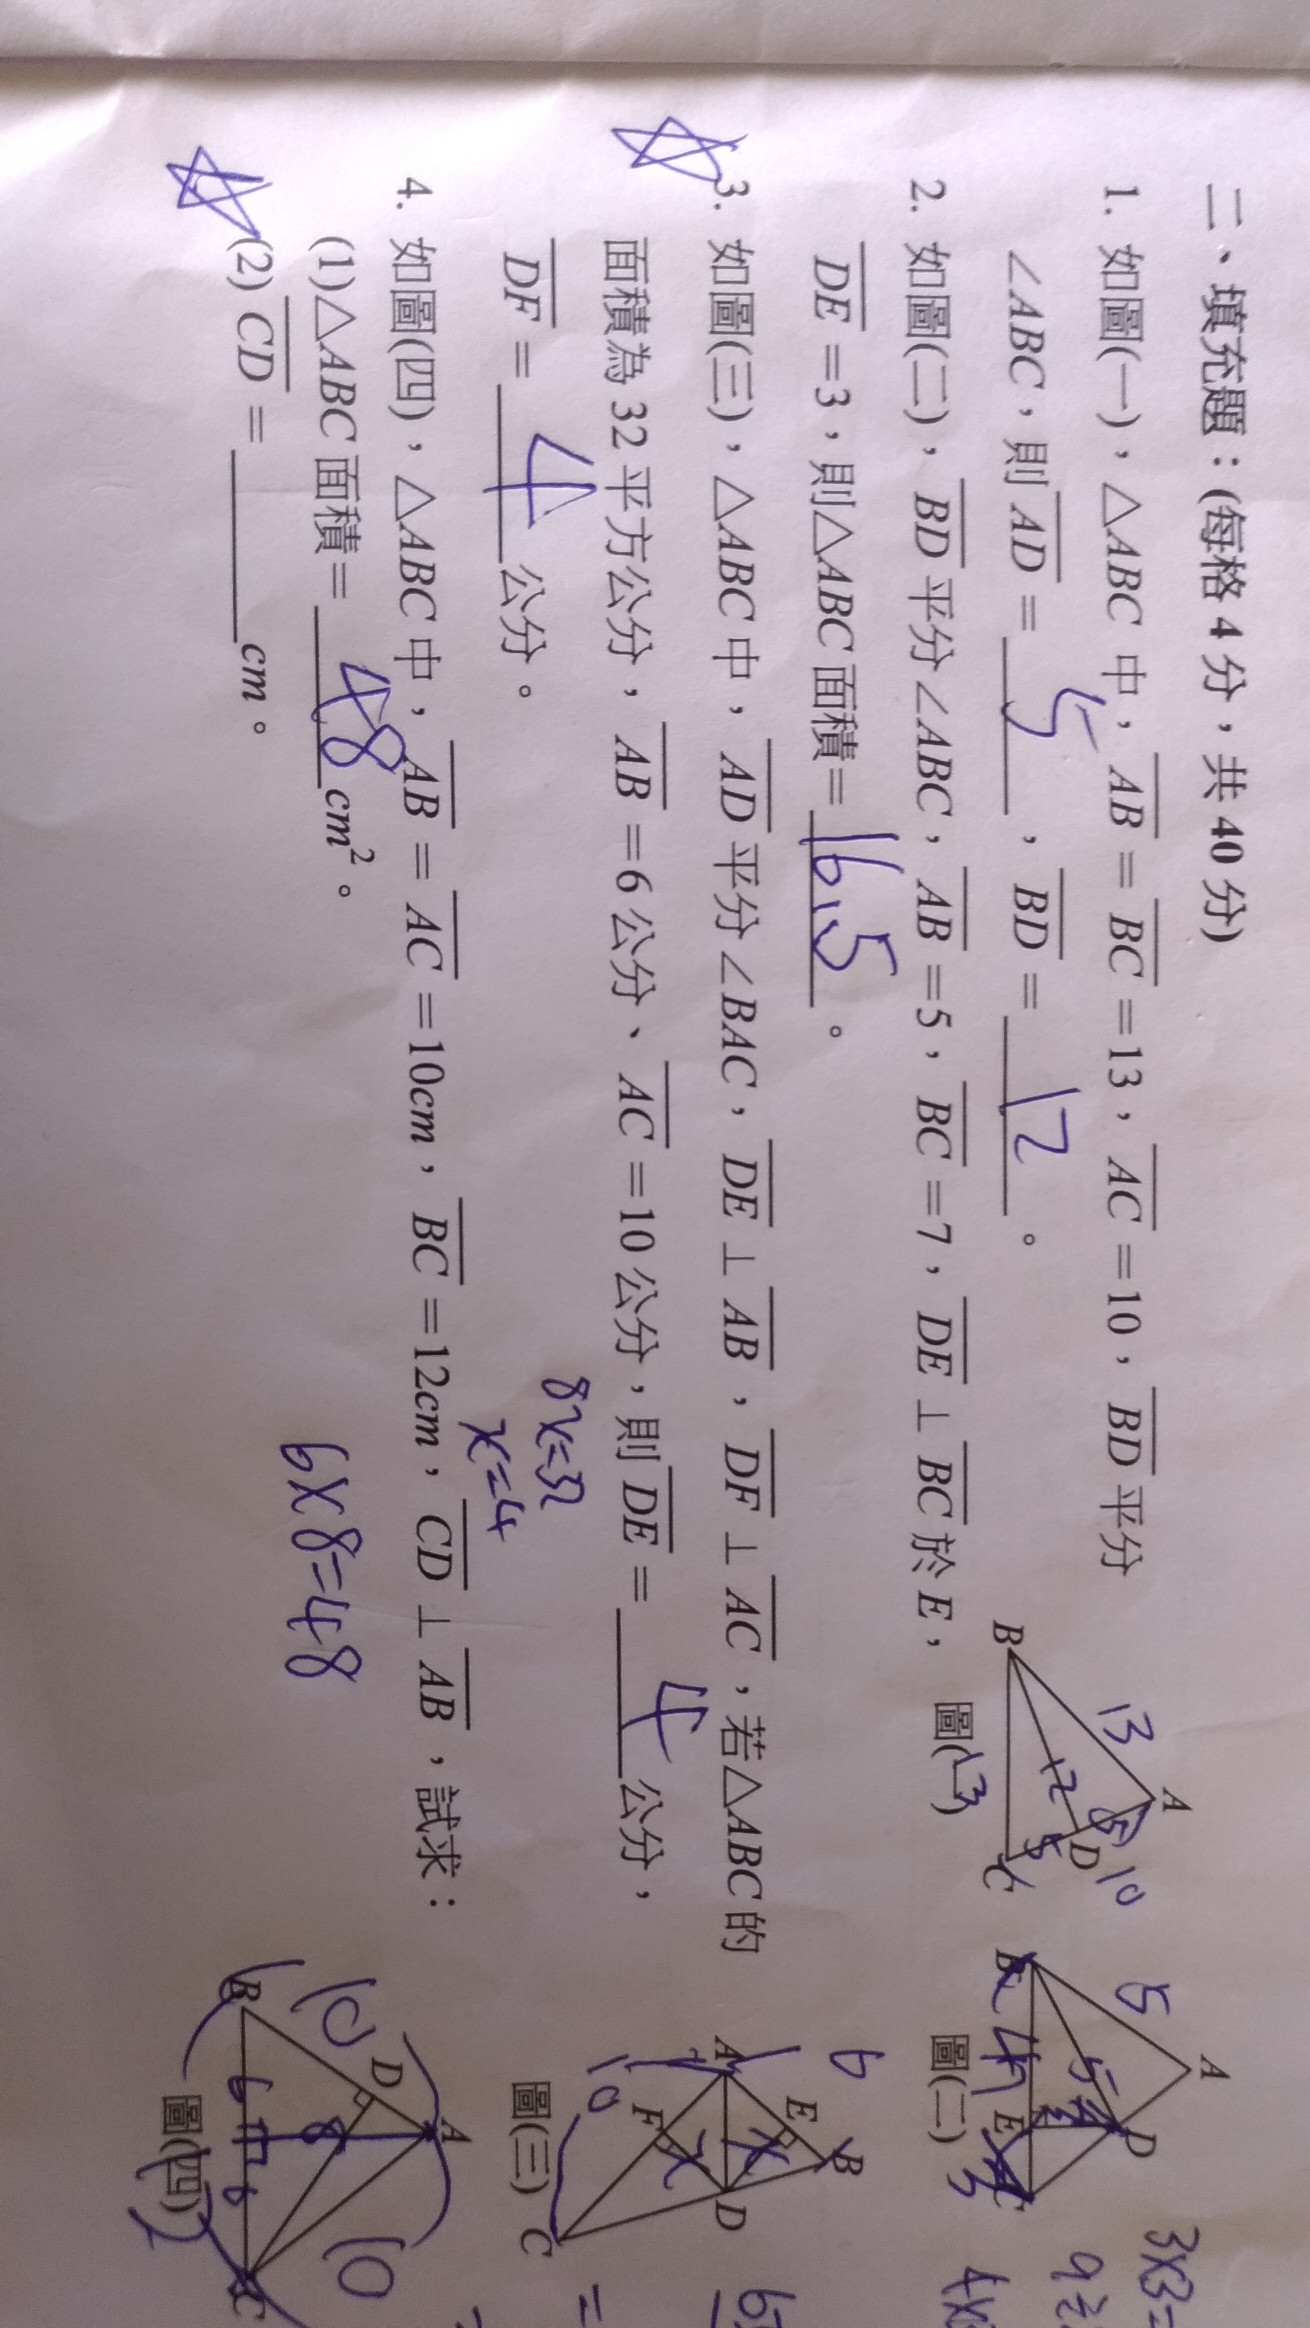 二、填充題：(每格 4 分，共 40 分)
1. 如圖(一)，△ABC 中，AB = BC =13，AC =10，BD 平分
∠ABC，則 AD = 5，BD = 12。
2. 如圖(二)，BD 平分∠ABC，AB =5，BC =7，DE⊥BC 於 E，
DE =3，則△ABC 面積= 16.5。
3. 如圖(三)，△ABC 中，AD 平分∠BAC，DE⊥AB，DF⊥AC，若△ABC 的
面積為 32 平方公分，AB =6 公分、AC =10 公分，則 DE = 4 公分，
DF = 4 公分。
8x=32
x=4
4. 如圖(四)，△ABC 中，AB = AC =10cm，BC =12cm，CD⊥AB，試求：
(1)△ABC 面積= 48 cm²。
(2) CD = cm。
6×8=48
A
13
5
10
D
12
5
B
C
13
圖(一)
A
5
D
B
E
C
圖(二)
3×3=
6
B
E
x
A
D
F
x
10
C
圖(三)
A
10
10
D
8
B
6
6
C
圖(四)